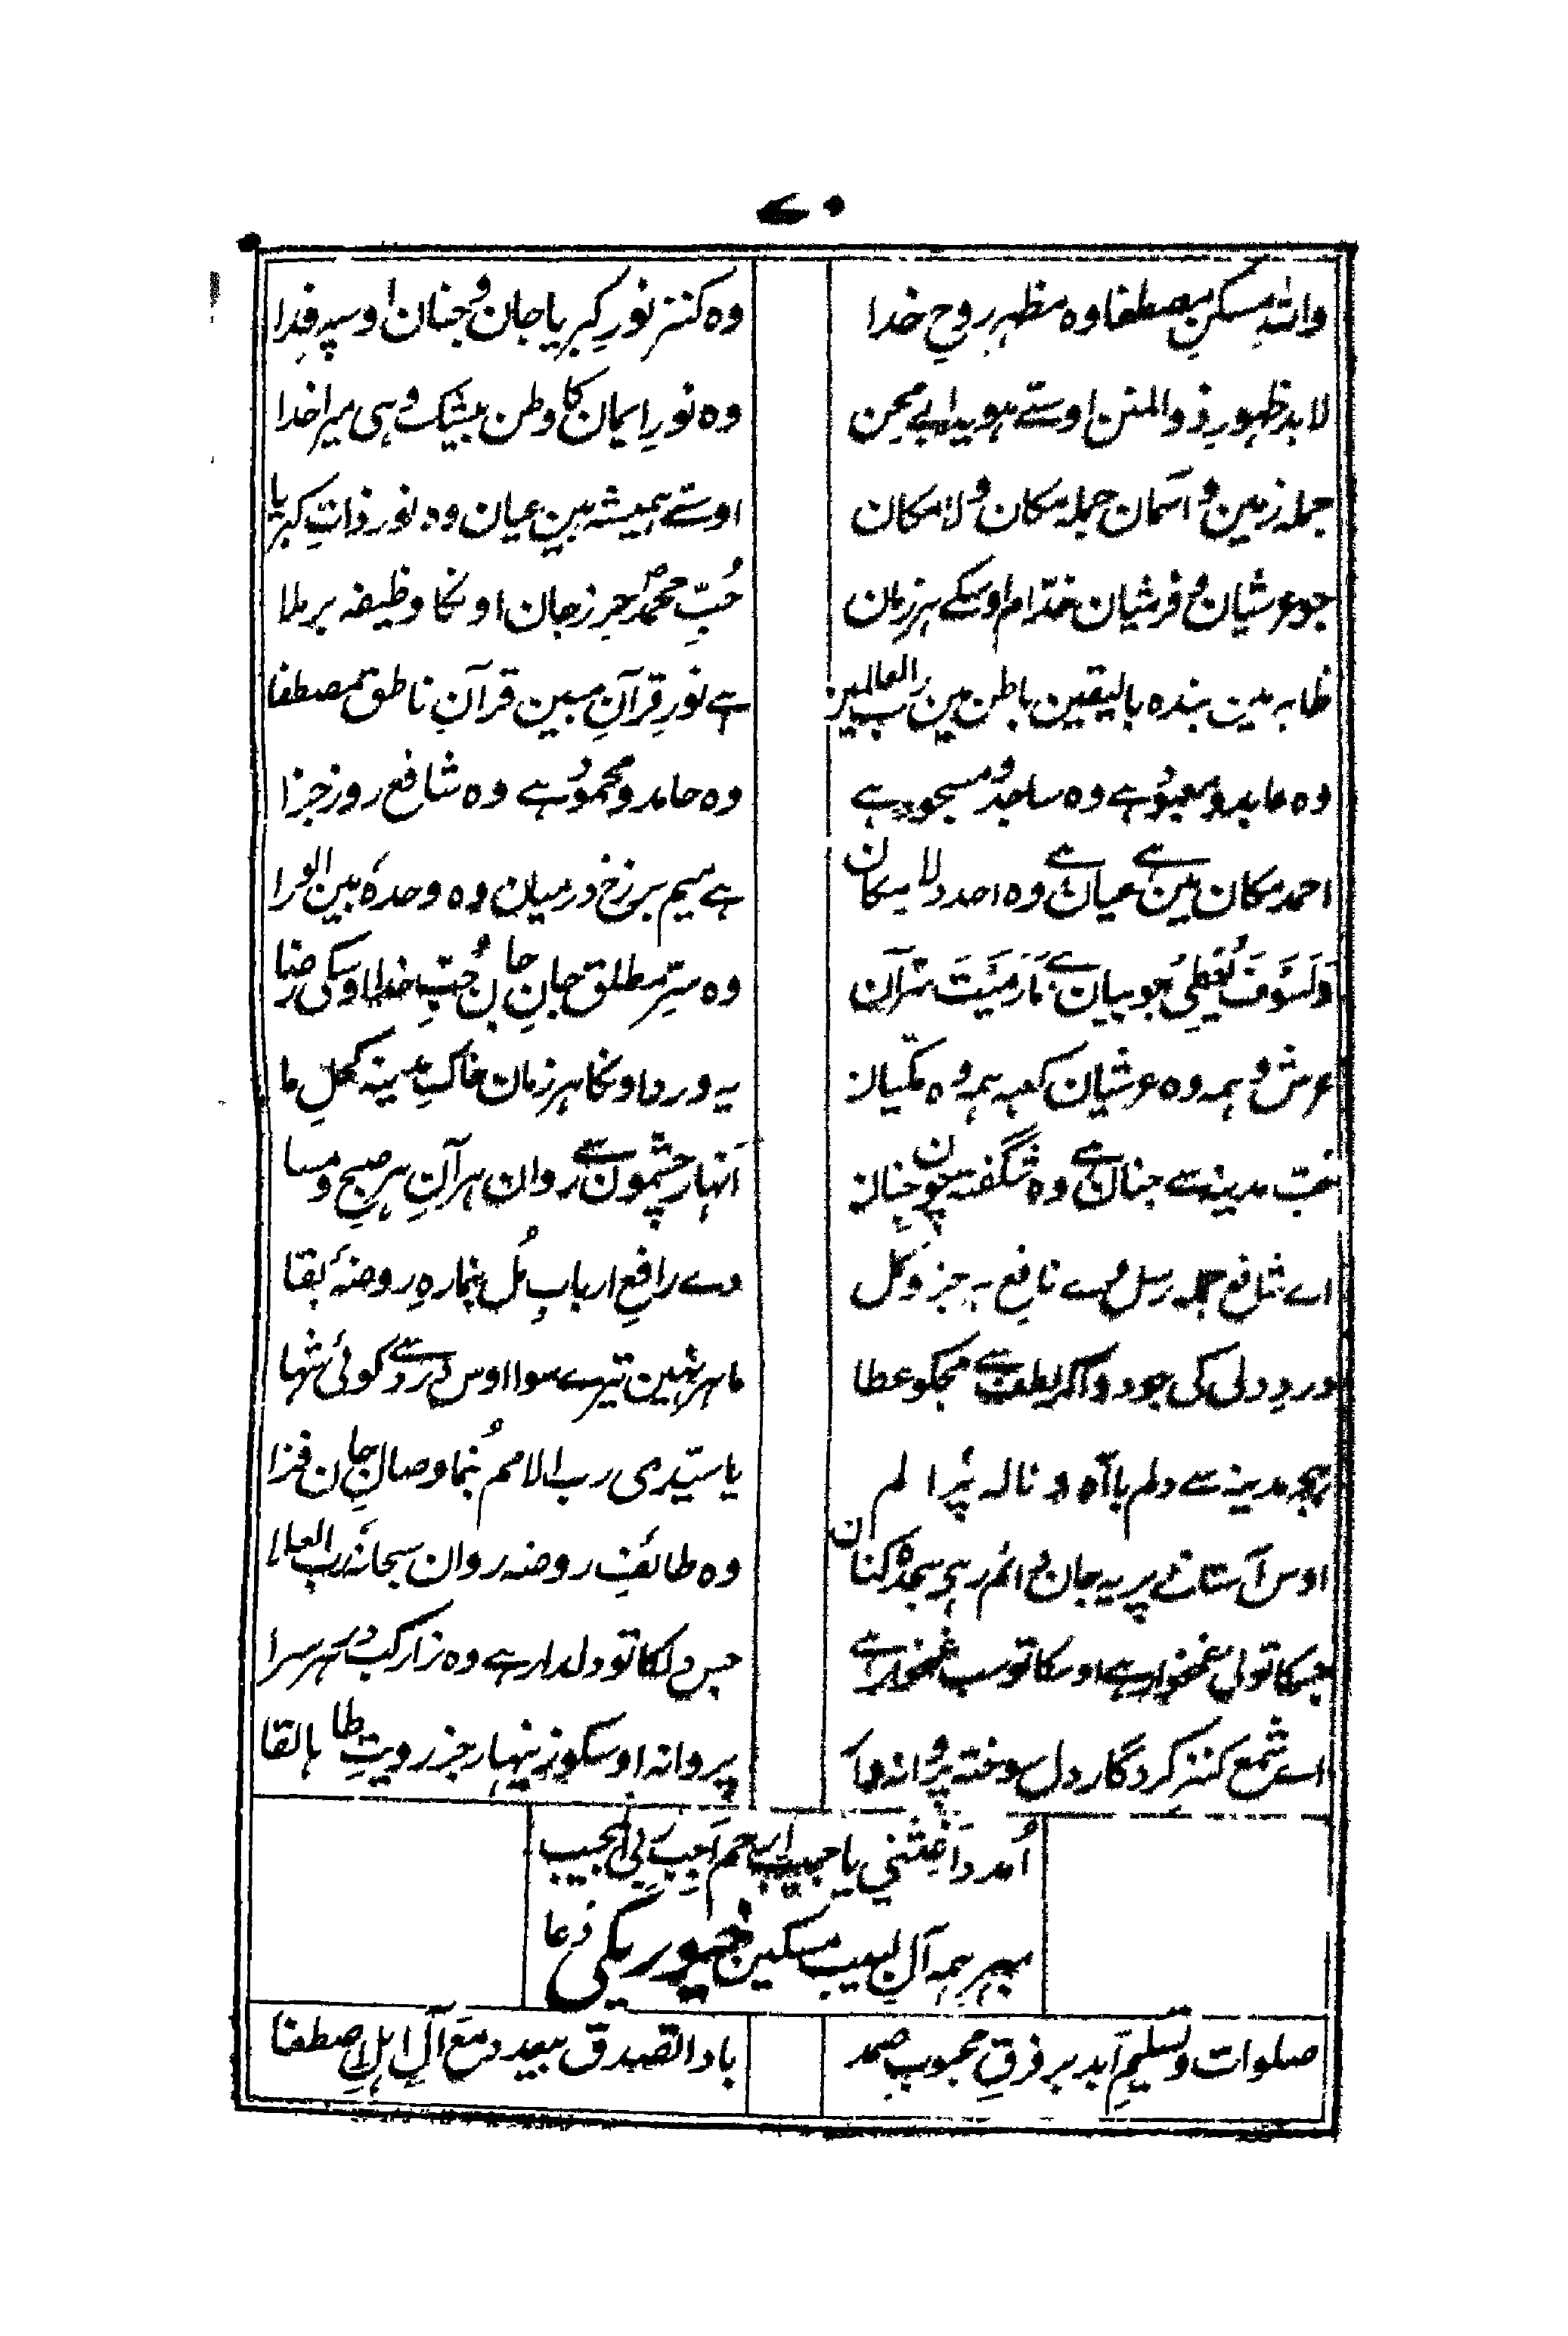 ۷۰
واللہ مسکنِ مصطفا وہ مظہرِ روحِ خدا
وہ کنز نورِ کبریا جان و جنان اوسپہ فدا
لابد ظہورِ ذوالمنن اوستے ہویدا بے محن
وہ نورِ ایمان کا وطن بیشک وہی میرا خدا
جملہ زمین و آسمان جملہ مکان و لامکان
اوستے ہمیشہ ہین عیان وہ نور ذاتِ کبریا
جو عرشیان و فرشیان خدّام اوسکے ہر زمان
حُبِّ محمدؐ حرز جان اونکا وظیفہ برملا
ظاہر مین بندہ بالیقین باطن مین رب العالمین
ہے نورِ قرآنِ مبین قرآنِ ناطق مصطفا
وہ عابد و معبود ہے وہ ساجد و مسجود ہے
وہ حامد و محمود ہے وہ شافع روز جزا
احمد مکان مین ہے عیان ہے وہ احد لامکان
ہے میم برزخ درمیان وہ وحدہٗ بین الورا
وَلَسَوْفَ یُعْطِیْ جو بیان ہے مَارَمَیْتَ قرآن
وہ سِرِّ مطلق جانِ جان حُبِّ خدا اوسکی رضا
عرش و ہمہ وہ عرشیان کعبہ ہمہ وہ مکّیان
یہ ورد اونکا ہر زمان خاکِ مدینہ کحلِ ما
مدینہ سے جنان ہے وہ شگفتہ چون جنان
اَنہار چشمون سے روان ہر آن ہر صبح و مسا
اے شافع جملہ رسل وے نافع ہر جز و کل
وے رافع اربابِ مُل بنما رہِ روضۂ بقا
دردِ دلی کی جو دوا کر لطف سے مجکو عطا
ماہر نہین تیرے سوا اوس درد سے کوئی شہا
ہجر مدینہ سے دلم با آہ و نالہ پُر الم
یا سیّدی رب الامم بنما وصالِ جان فزا
اوس آستانے پر یہ جان دائم رہے سجدہ کنان
وہ طائفِ روضہ روان سبحانہٗ رب العلا
جسکا تو ہی غمخوار ہے اوسکا تو سب غمخوار ہے
جس دلکا تو دلدار ہے وہ زار کب در ہر سرا
اے شمع کنز کردگار دل سوختہ پروانہ
پروانہ اوسکو زینہار جز رویتِ طاہا لقا
اُمدد اَغِثْنِی یا حبیب ارحم اَجِبْ لِی المجیب
بہرِ ہمہ آلِ لبیب مسکین خیور یکی دعا
صلوات و تسلیمِ ابد بر فرقِ محبوبِ صمد
بادا تصدق بیعدد مَعَ آلِ اہلِ اصطفا